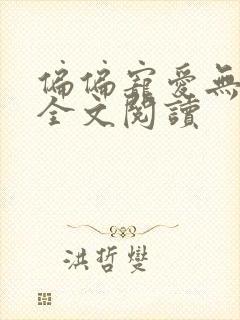 偏偏寵愛無
全文閱讀
洪哲燮